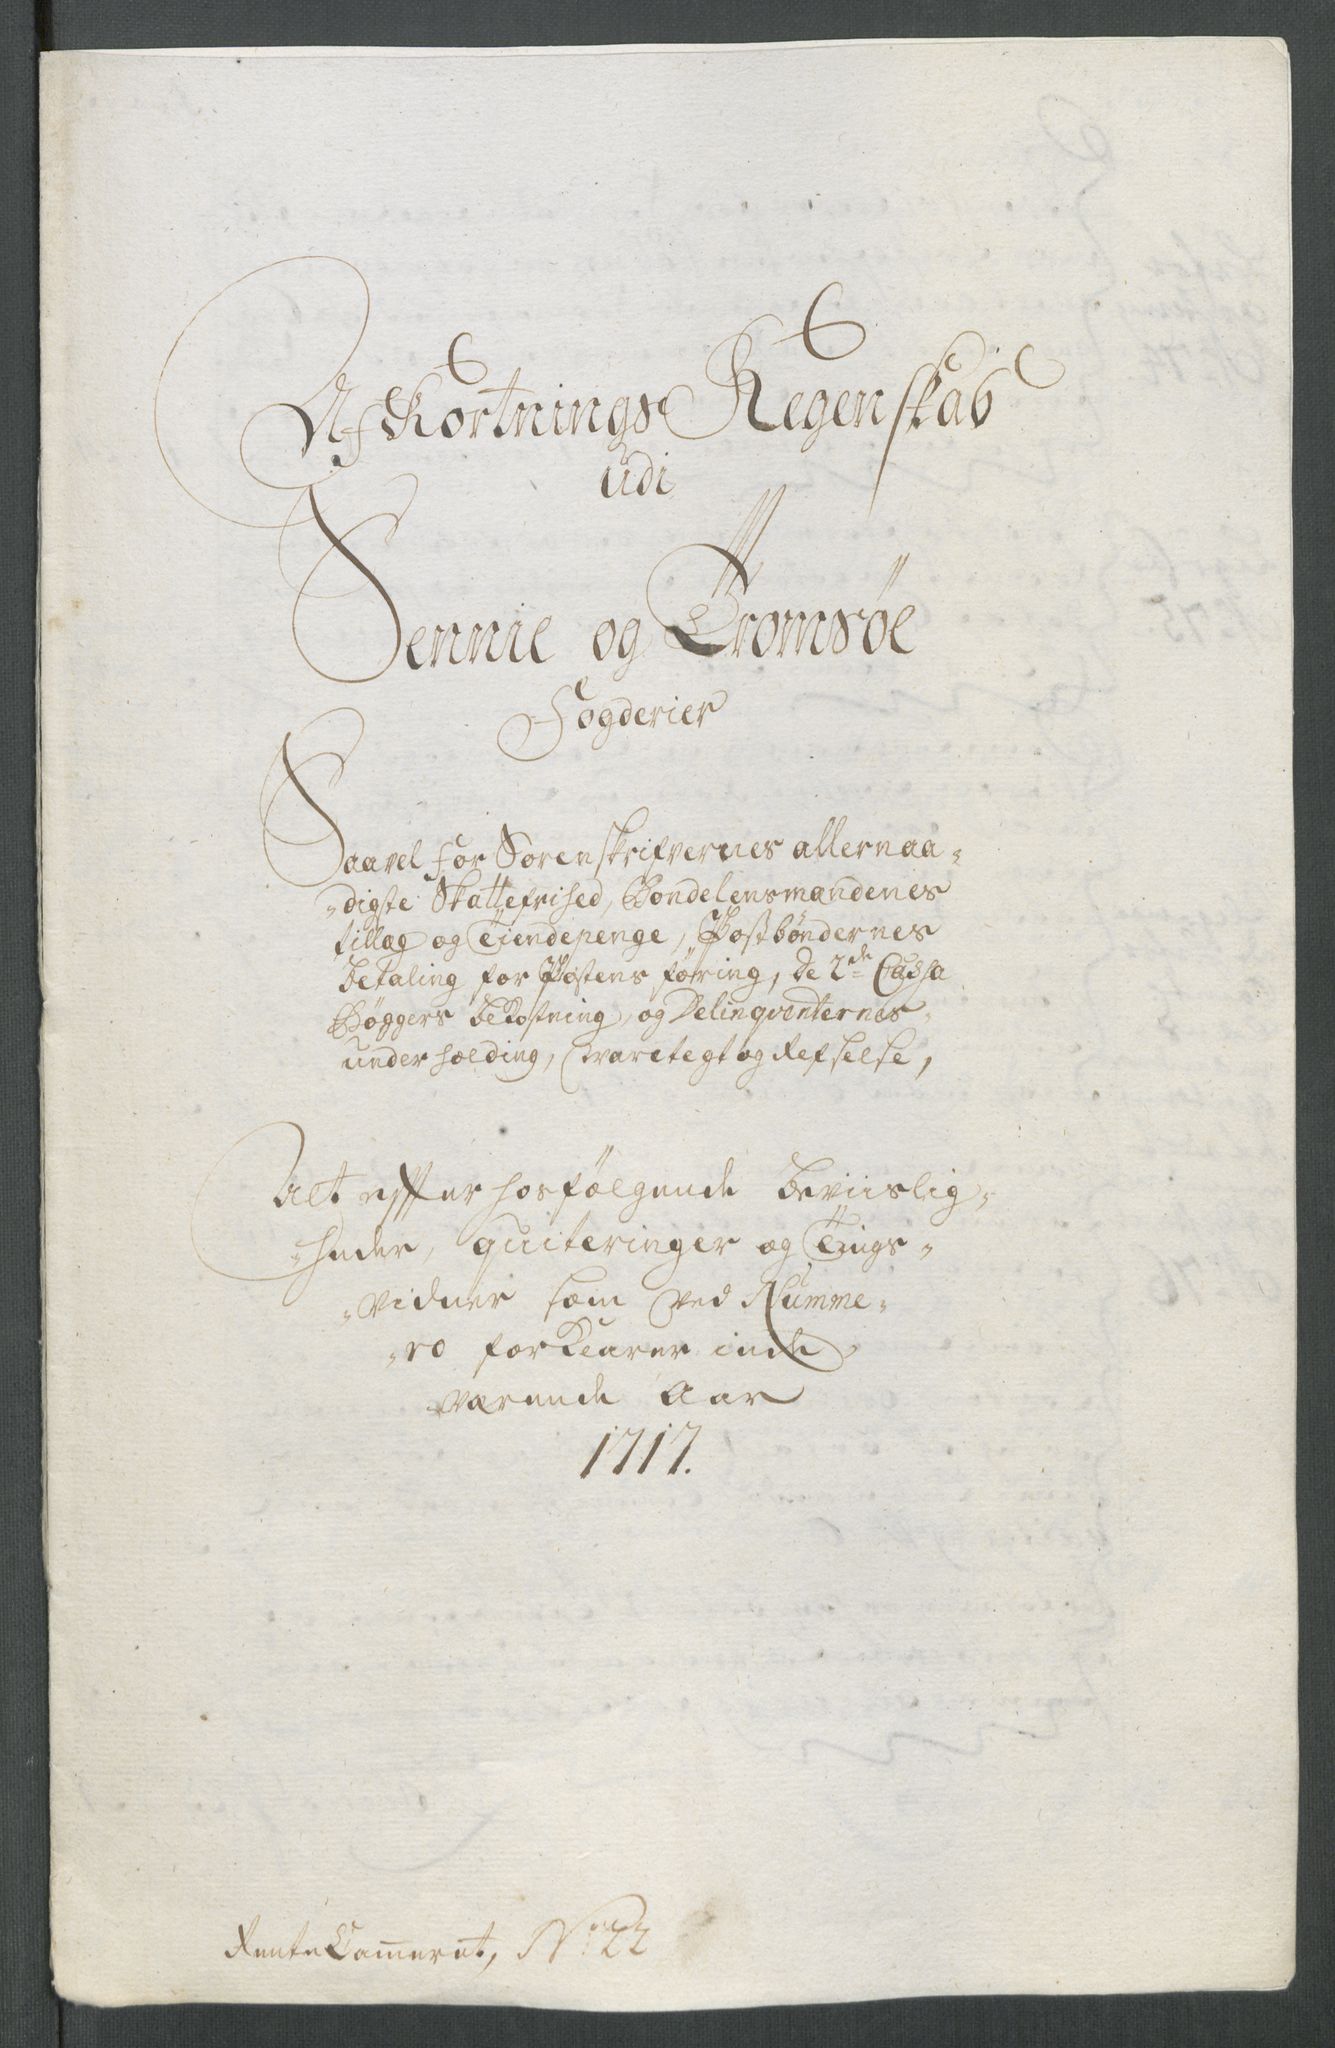 Afkortnings Regenskab
udi
Sennie og Tromsøe
Fogderier
Saavel for Sorenskrifvernes allernaa-
-digste Skattefrihed, Bondelensmændenes
tillæg og Tiendepenge, Postbøndernes
betaling for Postens føring, de 2de Cassa
Bøggers bekostning, og Delinqventernes
underholding, varetegt og Refselse,
Alt efter hosfølgende beviislig-
-heder, quiteringer og Tings-
-vidner som ved Numme-
-ro forklarer inde
værende Aar
1717.
Rente Cammeret, No 22